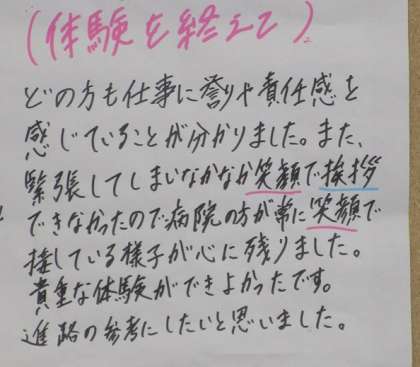 (体験を終えて)
どの方も仕事に誇りや責任感を
感じていることが分かりました。また、
緊張してしまいなかなか笑顔で挨拶
できなかったので病院の方が常に笑顔で
接している様子が心に残りました。
貴重な体験ができよかったです。
進路の参考にしたいと思いました。